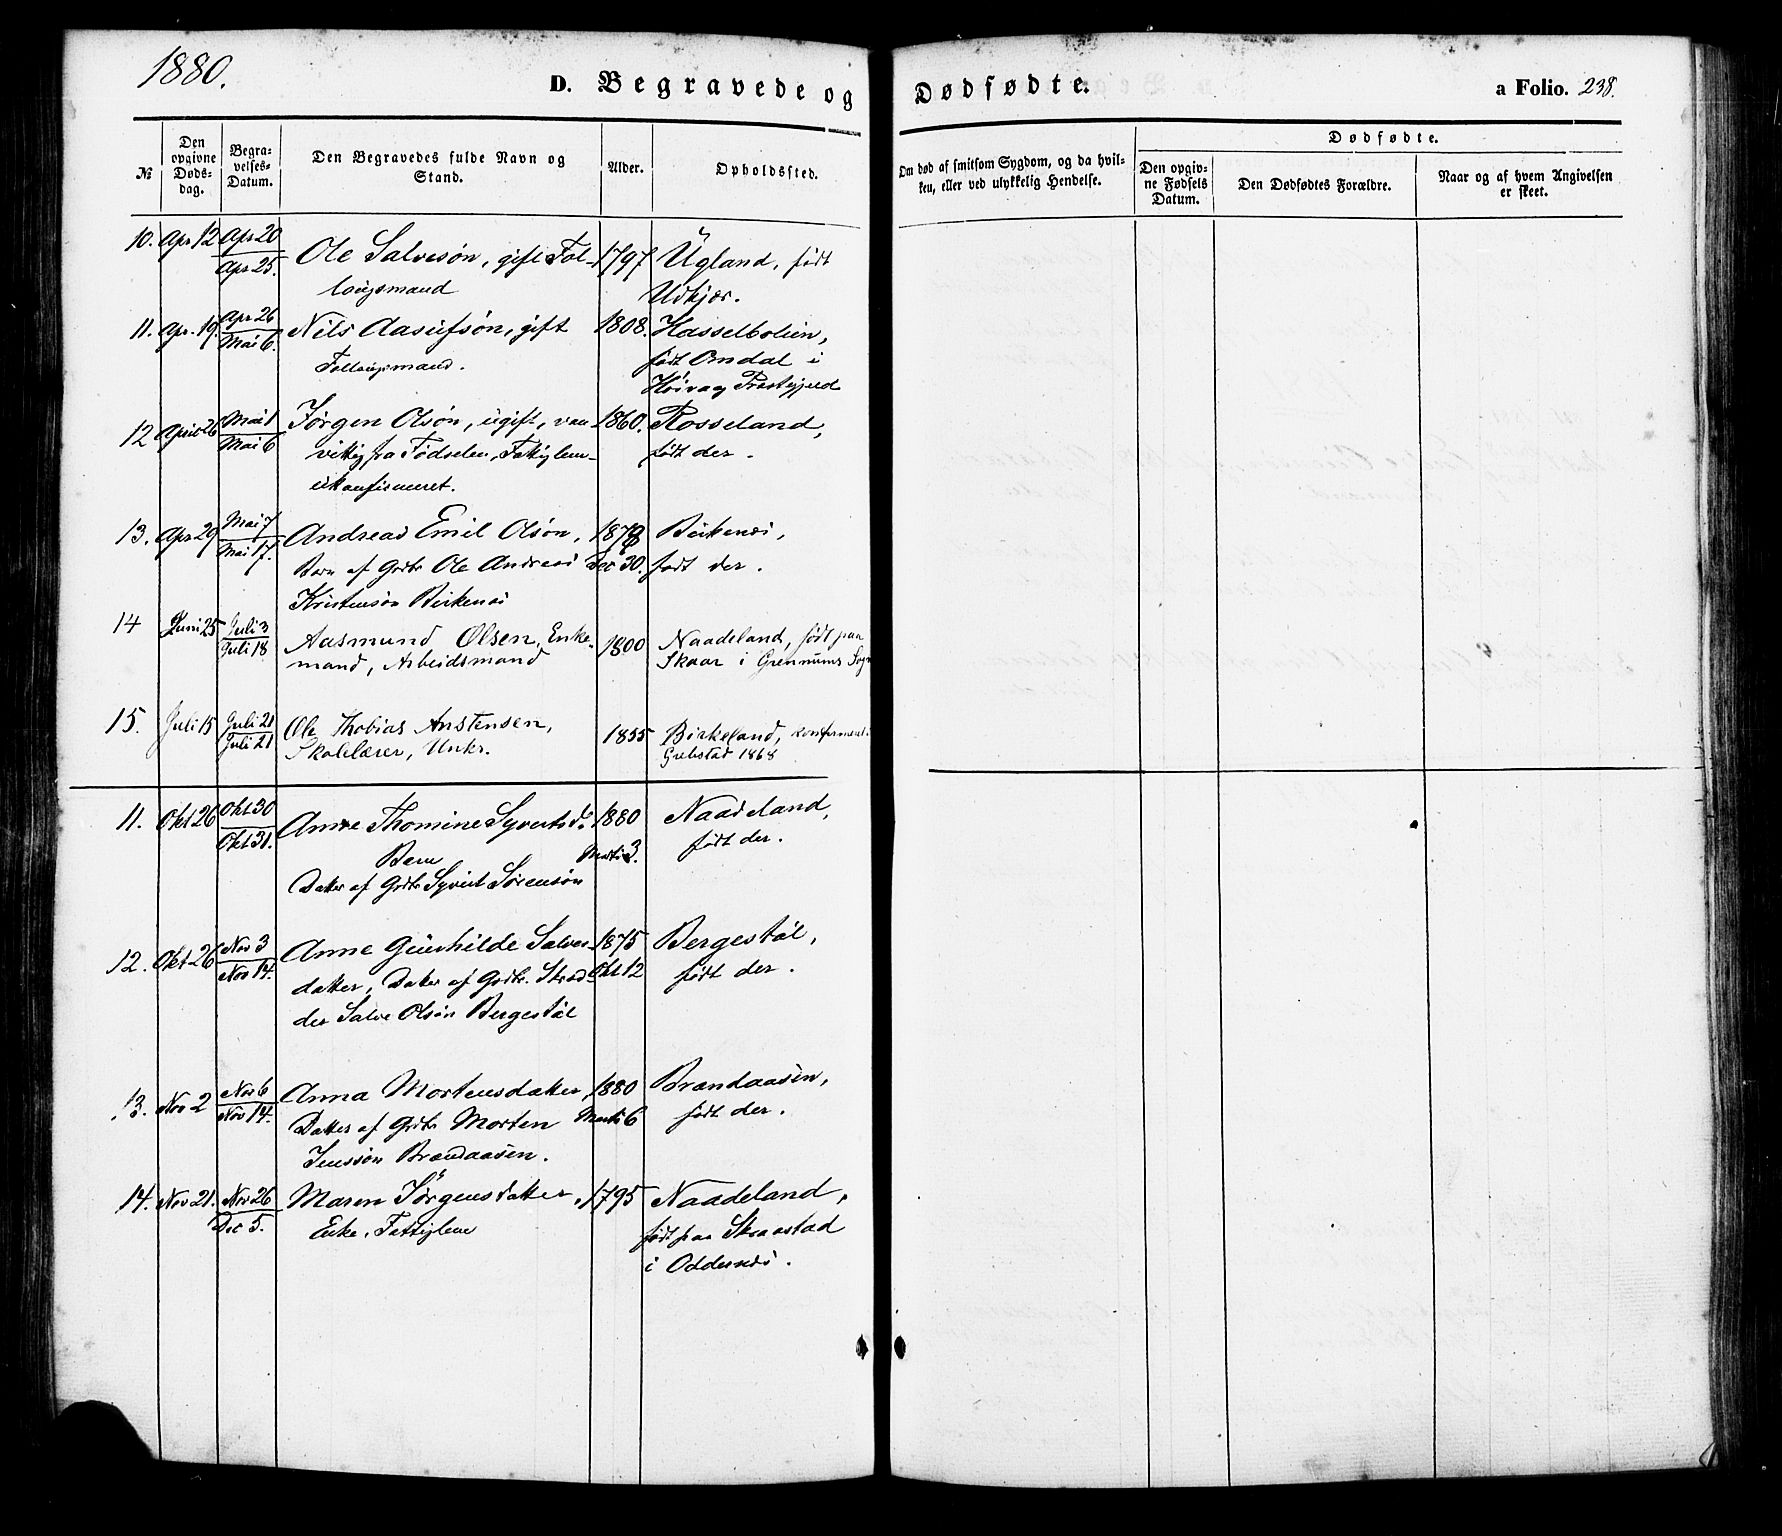 1880.
D. Begravede og Dødfødte.
a Folio. 238.
№
Den opgivne Døds-dag.
Begra-velses-Datum.
Den Begravedes fulde Navn og Stand.
Alder.
Opholdssted.
Om død af smitsom Sygdom, og da hvil-
ken, eller ved ulykkelig Hendelse.
Dødfødte.
Den opgiv-ne Fødsels Datum.
Den Dødfødtes Forældre.
Naar og af hvem Angivelsen er skeet.
10. Apr 12 Apr 20 Ole Salvesøn, gift Fol- 1797 Ugland, født
Apr 25. laugsmand Udkjær.
11. Apr. 19 Apr 26 Nils Aasulfsøn, gift 1808. Hasselbolien,
Mai 6. Follaugsmand. født Omdal i
Høivag Præstegjeld
12 April 26 Mai 1 Jørgen Olsøn, ugift, van- 1860. Rosseland,
Mai 6 vittig fra Fødselen, Fattiglem- født der.
ukonfirmeret.
13. Apr 29 Mai 7 Andreas Emil Olsøn, 1878 Birkenæs,
Mai 17. Barn af Grdbr Ole Andreas Dec 30. født der.
Kristensøn Birkenæs
14 Juni 25 Juli 3 Aasmund Olsen, Enke- 1800 Naadeland, født paa
Juli 18 mand, Arbeidsmand Skaar i Grennums Sogn
15. Juli 15 Juli 21 Ole Thobias Anstensen, 1855 Birkeland, konfirmeret i
Juli 21 Skolelærer, Unkr. Grebstad 1868
11. Okt 26 Okt 30 Anne Thomine Syvertsd. 1880 Naadeland,
Okt 31. Barn Marts 3. født der.
Datter af Grdbr Syvert Sørensøn
12. Okt 26 Nov 3 Anne Gunhilde Salves- 1875 Bergestøl,
Nov 14. datter, Datter af Grdbr. Okt 12 født der.
der Salve Olsøn Bergestøl
13. Nov 2 Nov 6 Anna Mortensdatter, 1880 Brandaasen,
Nov 14. Datter af Grdbr Morten Marts 6 født der.
Jenssøn Brandaasen.
14. Nov 21. Nov 26 Maren Jørgensdatter, 1795 Naadeland,
Dec 5. Enke, Fattiglem født paa Skraastad
i Oddernes.